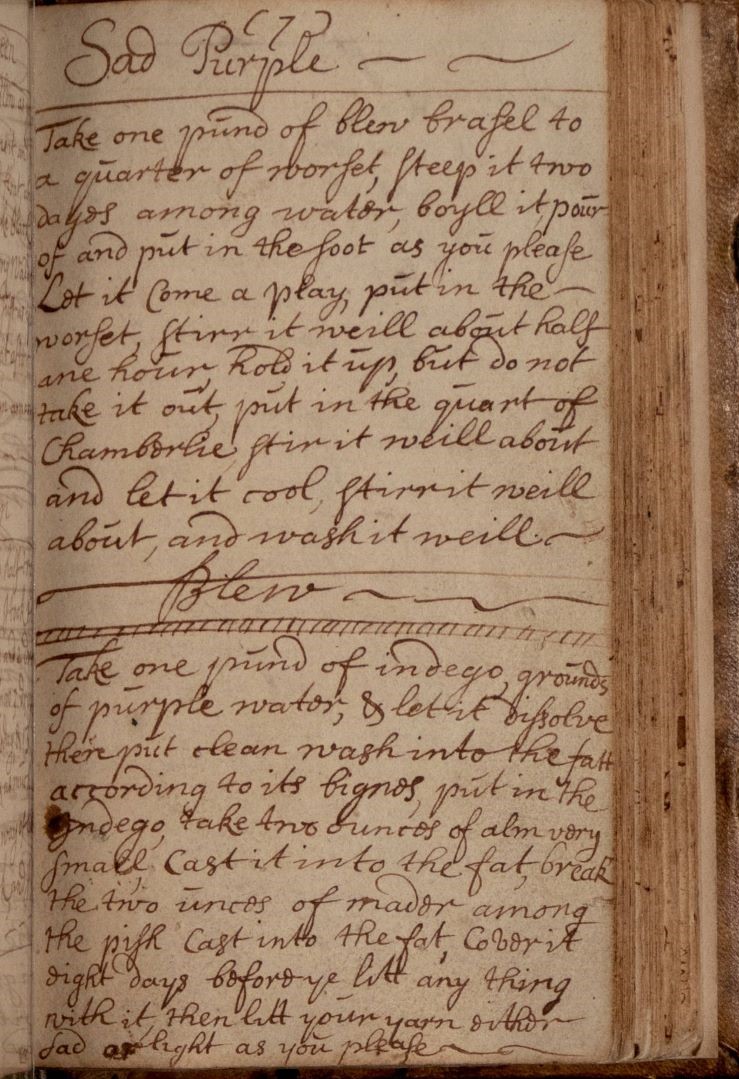 (7)
Sad Purple
Take one pund of blew brasel to
a quarter of worset, steep it two
dayes among water, boyll it, pour
of and put in the soot as you please
Let it Come a play, put in the
worset, stirr it weill about half
ane hour, hold it up, but do not
take it out, put in the quart of
Chamberlie, stir it weill about
and let it cool, stirr it weill
about, and wash it weill.
Blew
Take one pund of indego, grounds
of purple water, & let it dissolve
there put clean wash into the fatt
according to its bignes, put in the
Indego, take two ounces of alm very
small, Cast it into the fat, break
the two unces of mader among
the pish Cast into the fat, Cover it
eight days before ye litt any thing
with it, then litt your yarn either
sad or light as you please